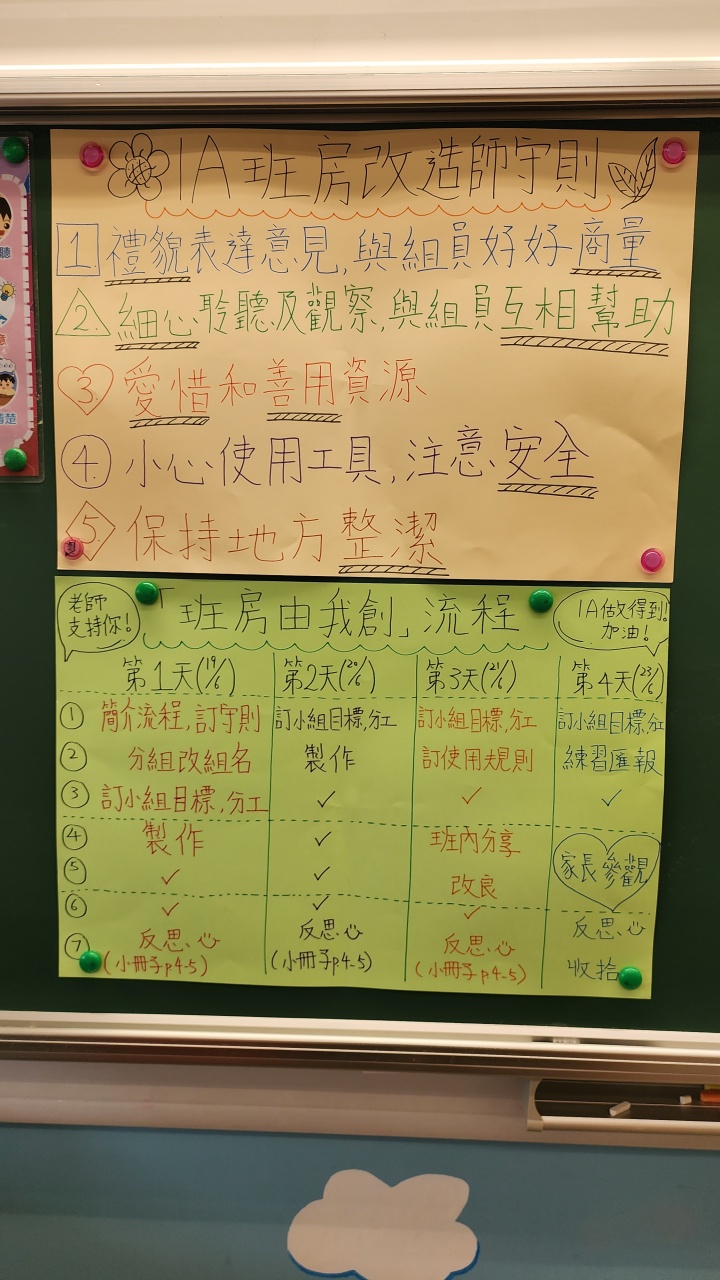 1A班房改造師守則
1. 禮貌表達意見,與組員好好商量
2. 細心聆聽及觀察,與組員互相幫助
3. 愛惜和善用資源
4. 小心使用工具,注意安全
5. 保持地方整潔
老師
支持你!
「班房由我創」流程
1A做得到!
加油!
第1天(19/6) 第2天(20/6) 第3天(21/6) 第4天(23/6)
① 簡介流程,訂守則 訂小組目標,分工 訂小組目標,分工 訂小組目標,分工
② 分組改組名 製作 訂使用規則 練習匯報
③ 訂小組目標,分工 ✓ ✓ ✓
④ 製作 ✓ 班內分享 家長參觀
⑤ ✓ ✓ 改良
⑥ ✓ ✓ ✓
⑦ 反思心 反思心 反思心 反思心
(小冊子p4-5) (小冊子p4-5) (小冊子p4-5) 收拾
聽
意
清楚